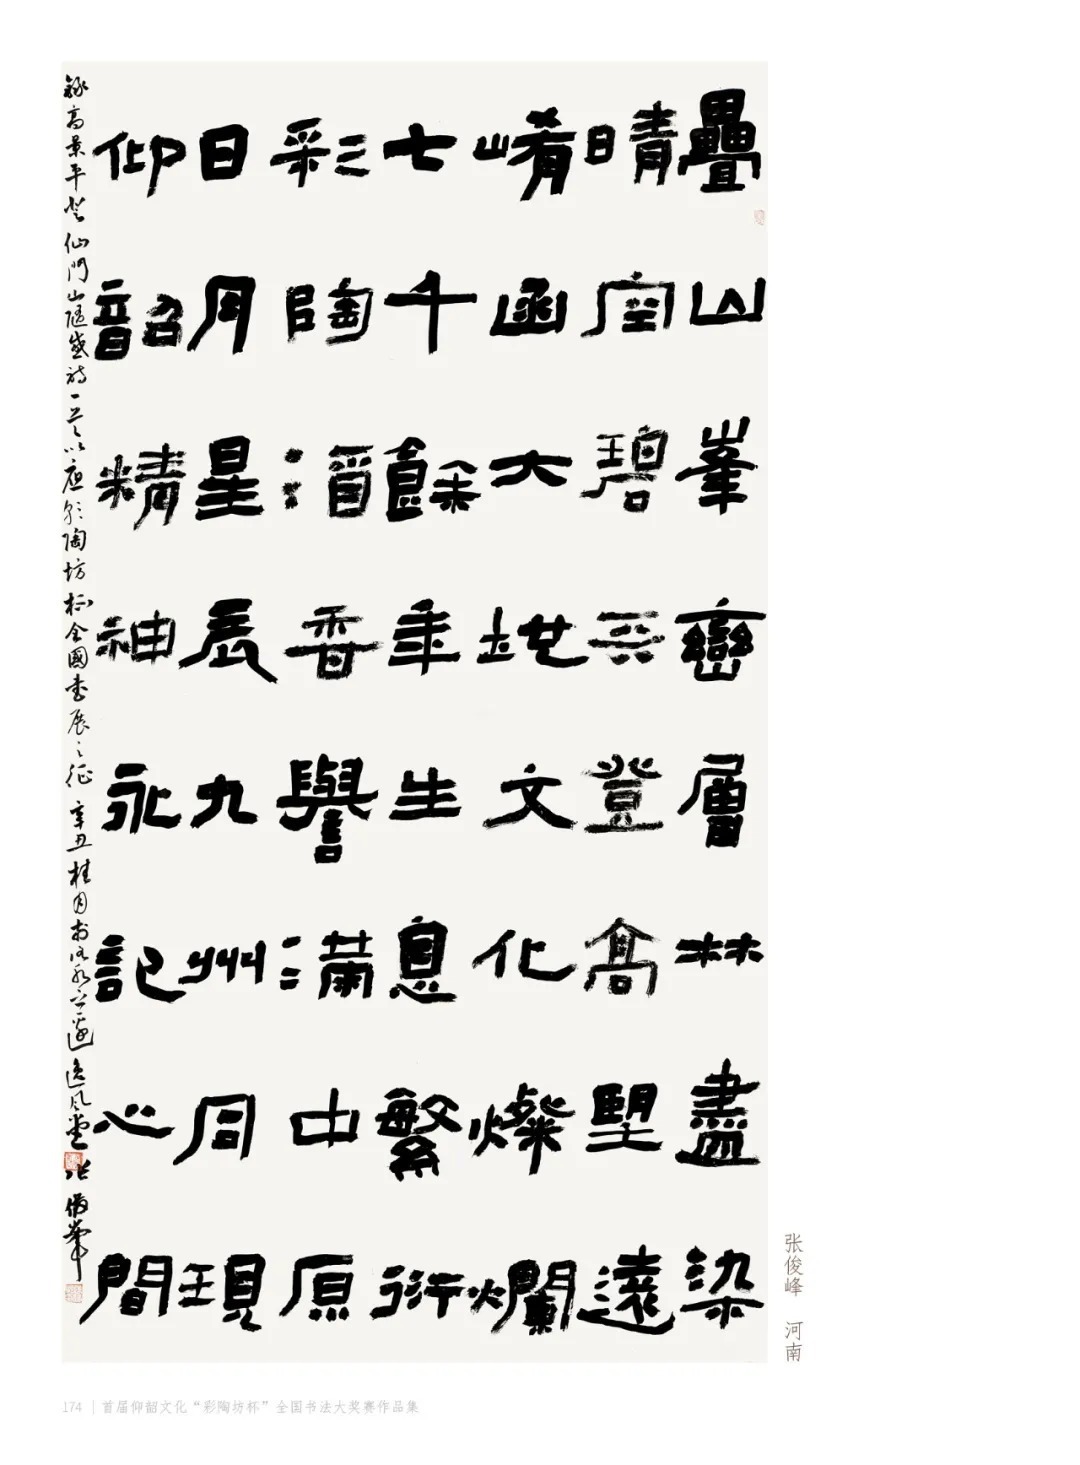 疊山峯巒層林盡染
晴空碧云登高望遠
崤函大地文化燦爛
七千餘年生息繁衍
彩陶酒香譽滿中原
日月星辰九州同現
仰韶精神永記心間
錄高景平登仙門山隨感詩一首以應彩陶坊杯全國書展之征 辛丑桂月書於 逸風堂 張俊峯
张俊峰 河南
174 | 首届仰韶文化“彩陶坊杯”全国书法大奖赛作品集